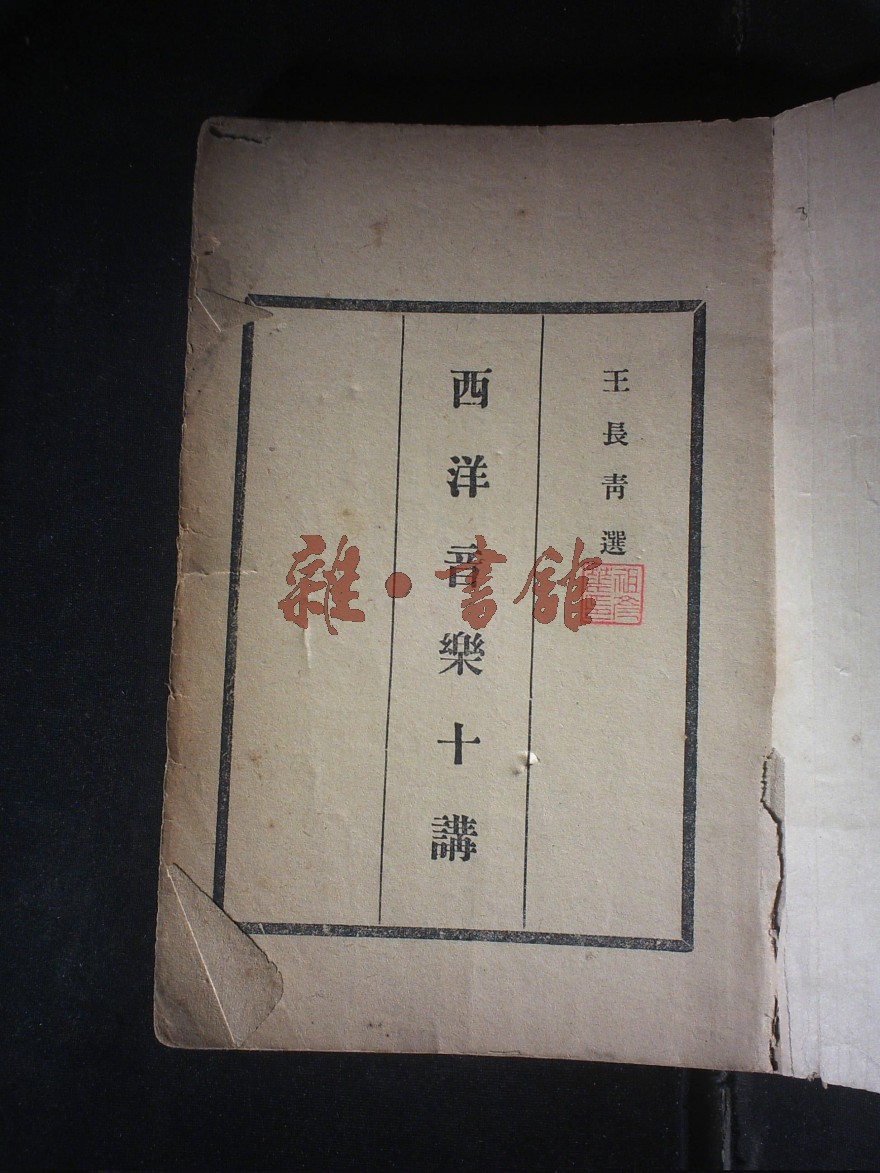 王長靑選
西洋音樂十講
雜·書館